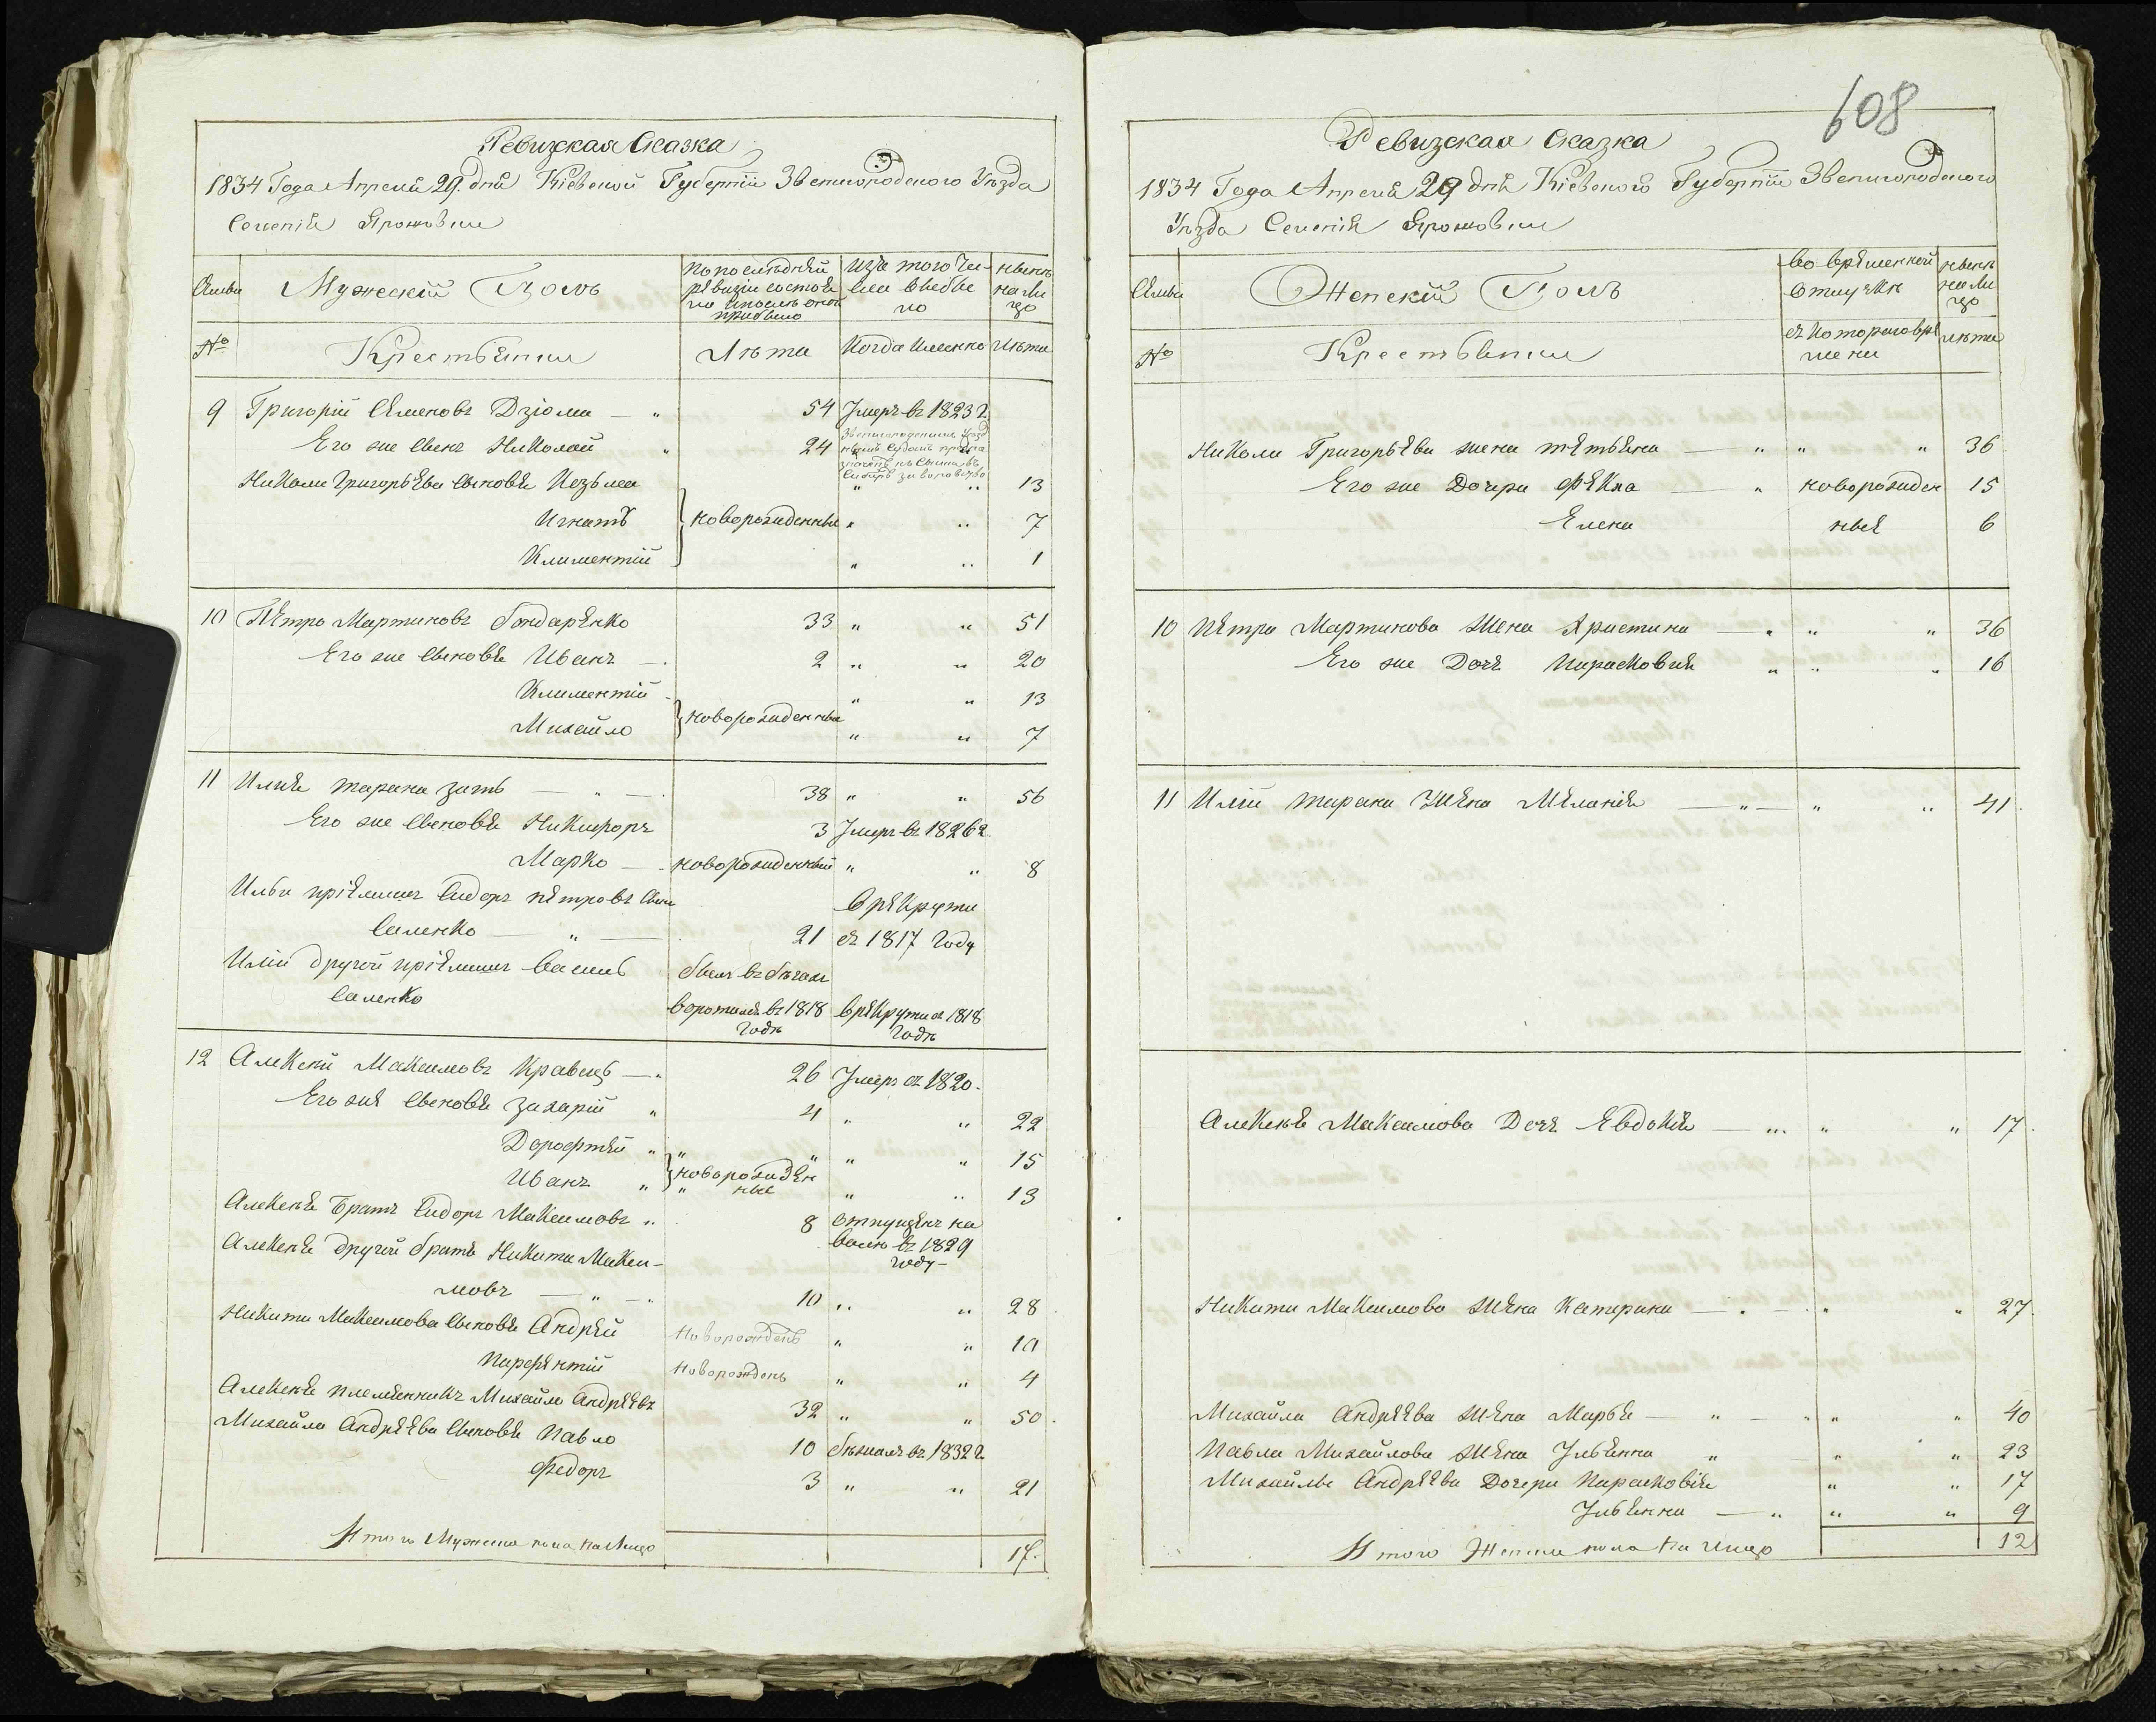 Ревизская Сказка
1834 Года Апреля 29. дня Кіевской Губерніи Звенигородского Уѣзда
Селенія Ярошовки
Семьи
Мужескій Полъ
По послѣдней ревизіи состояло и послѣ оной прибыло
Изъ того числа выбыло
Нынѣ на лицо
№
Крестьянии
Лѣта
Когда именно
Лѣта
9 Григорій Семеновъ Дзюма — " 54 Умеръ въ 1823 г.
Его же сынъ Николай " 24 Звенигородскимъ Уезднымъ Судомъ предназначенъ къ ссылки въ Сибирь за воровство
Николи Григорьева сыновья Козьма " " 13
Игнатъ } новорожденные " " 7
Климентій " " 1
10 Петро Мартиновъ Бондаренко 33 " " 51
Его же сыновья Иванъ — 2 " " 20
Климентій } новорожденные " " 13
Михайло " " 7
11 Илия тарана зять — " — 38 " " 56
Его же сыновья Никифоръ 3 Умеръ въ 1826 г.
Марко — новорожденный " " 8
Ильи пріемышъ Сидоръ петровъ сынъ
Саленко — " — 21 в рекруты съ 1817 году
Иліи другой пріемышъ Василь Саленко былъ въ бѣгахъ воротился въ 1818 годѣ в рекруты съ 1818 годѣ
12 Алексѣй Максимовъ Кравецъ — " 26 Умеръ съ 1820.
Его же сыновья Захарій " 4 " " 22
Дорофтей " " " " " 15
Иванъ " } новорожденные " " 13
Алексѣя Братъ Сидоръ Максимовъ " 8 отпущенъ на волю въ 1829 году —
Алексѣя другой братъ Никита Макси-
мовъ — " — 10 " " 28
Никити Максимова сыновья Андрей Новорожденъ " " 10
Парфентій Новорожденъ " " 4
Алексѣя племянникъ Михайло Андреевъ 32 " " 50
Михайла Андреева сыновья Павло 10 бѣжалъ въ 1832 г.
Федоръ 3 " " 21
Итого Мужеска пола на лицо 17.
608
Ревизская Сказка
1834 Года Апреля 29 дня Кіевской Губерніи Звенигородского
Уѣзда Селенія Ярошовки
Семьи
Женскій Полъ
Во временной отлучки
Нынѣ на лицо
№
Крестьянии
съ котораго времени
лѣта
Николи Григорьева жена тетьяна — " " " 36
Его же Дочери Фекла — " новорожден 15
Елена ные 6
10 Петра Мартинова жена Христина — " " " 36
Его же Дочь Парасковія " " " 16
11 Иліи тарана Жена Меланія — " — " " 41
Алексѣя Максимова Дочь Евдокія — " " " 17
Никити Максимова Жена Катерина — " — " " 27
Михайла Андреева Жена Марья — " — " " " 40
Павла Михайлова Жена Ульянна " " " 23
Михайлы Андреева Дочери Парасковія " " 17
Ульянна — " " " 9
Итого Женска пола на лицо 12